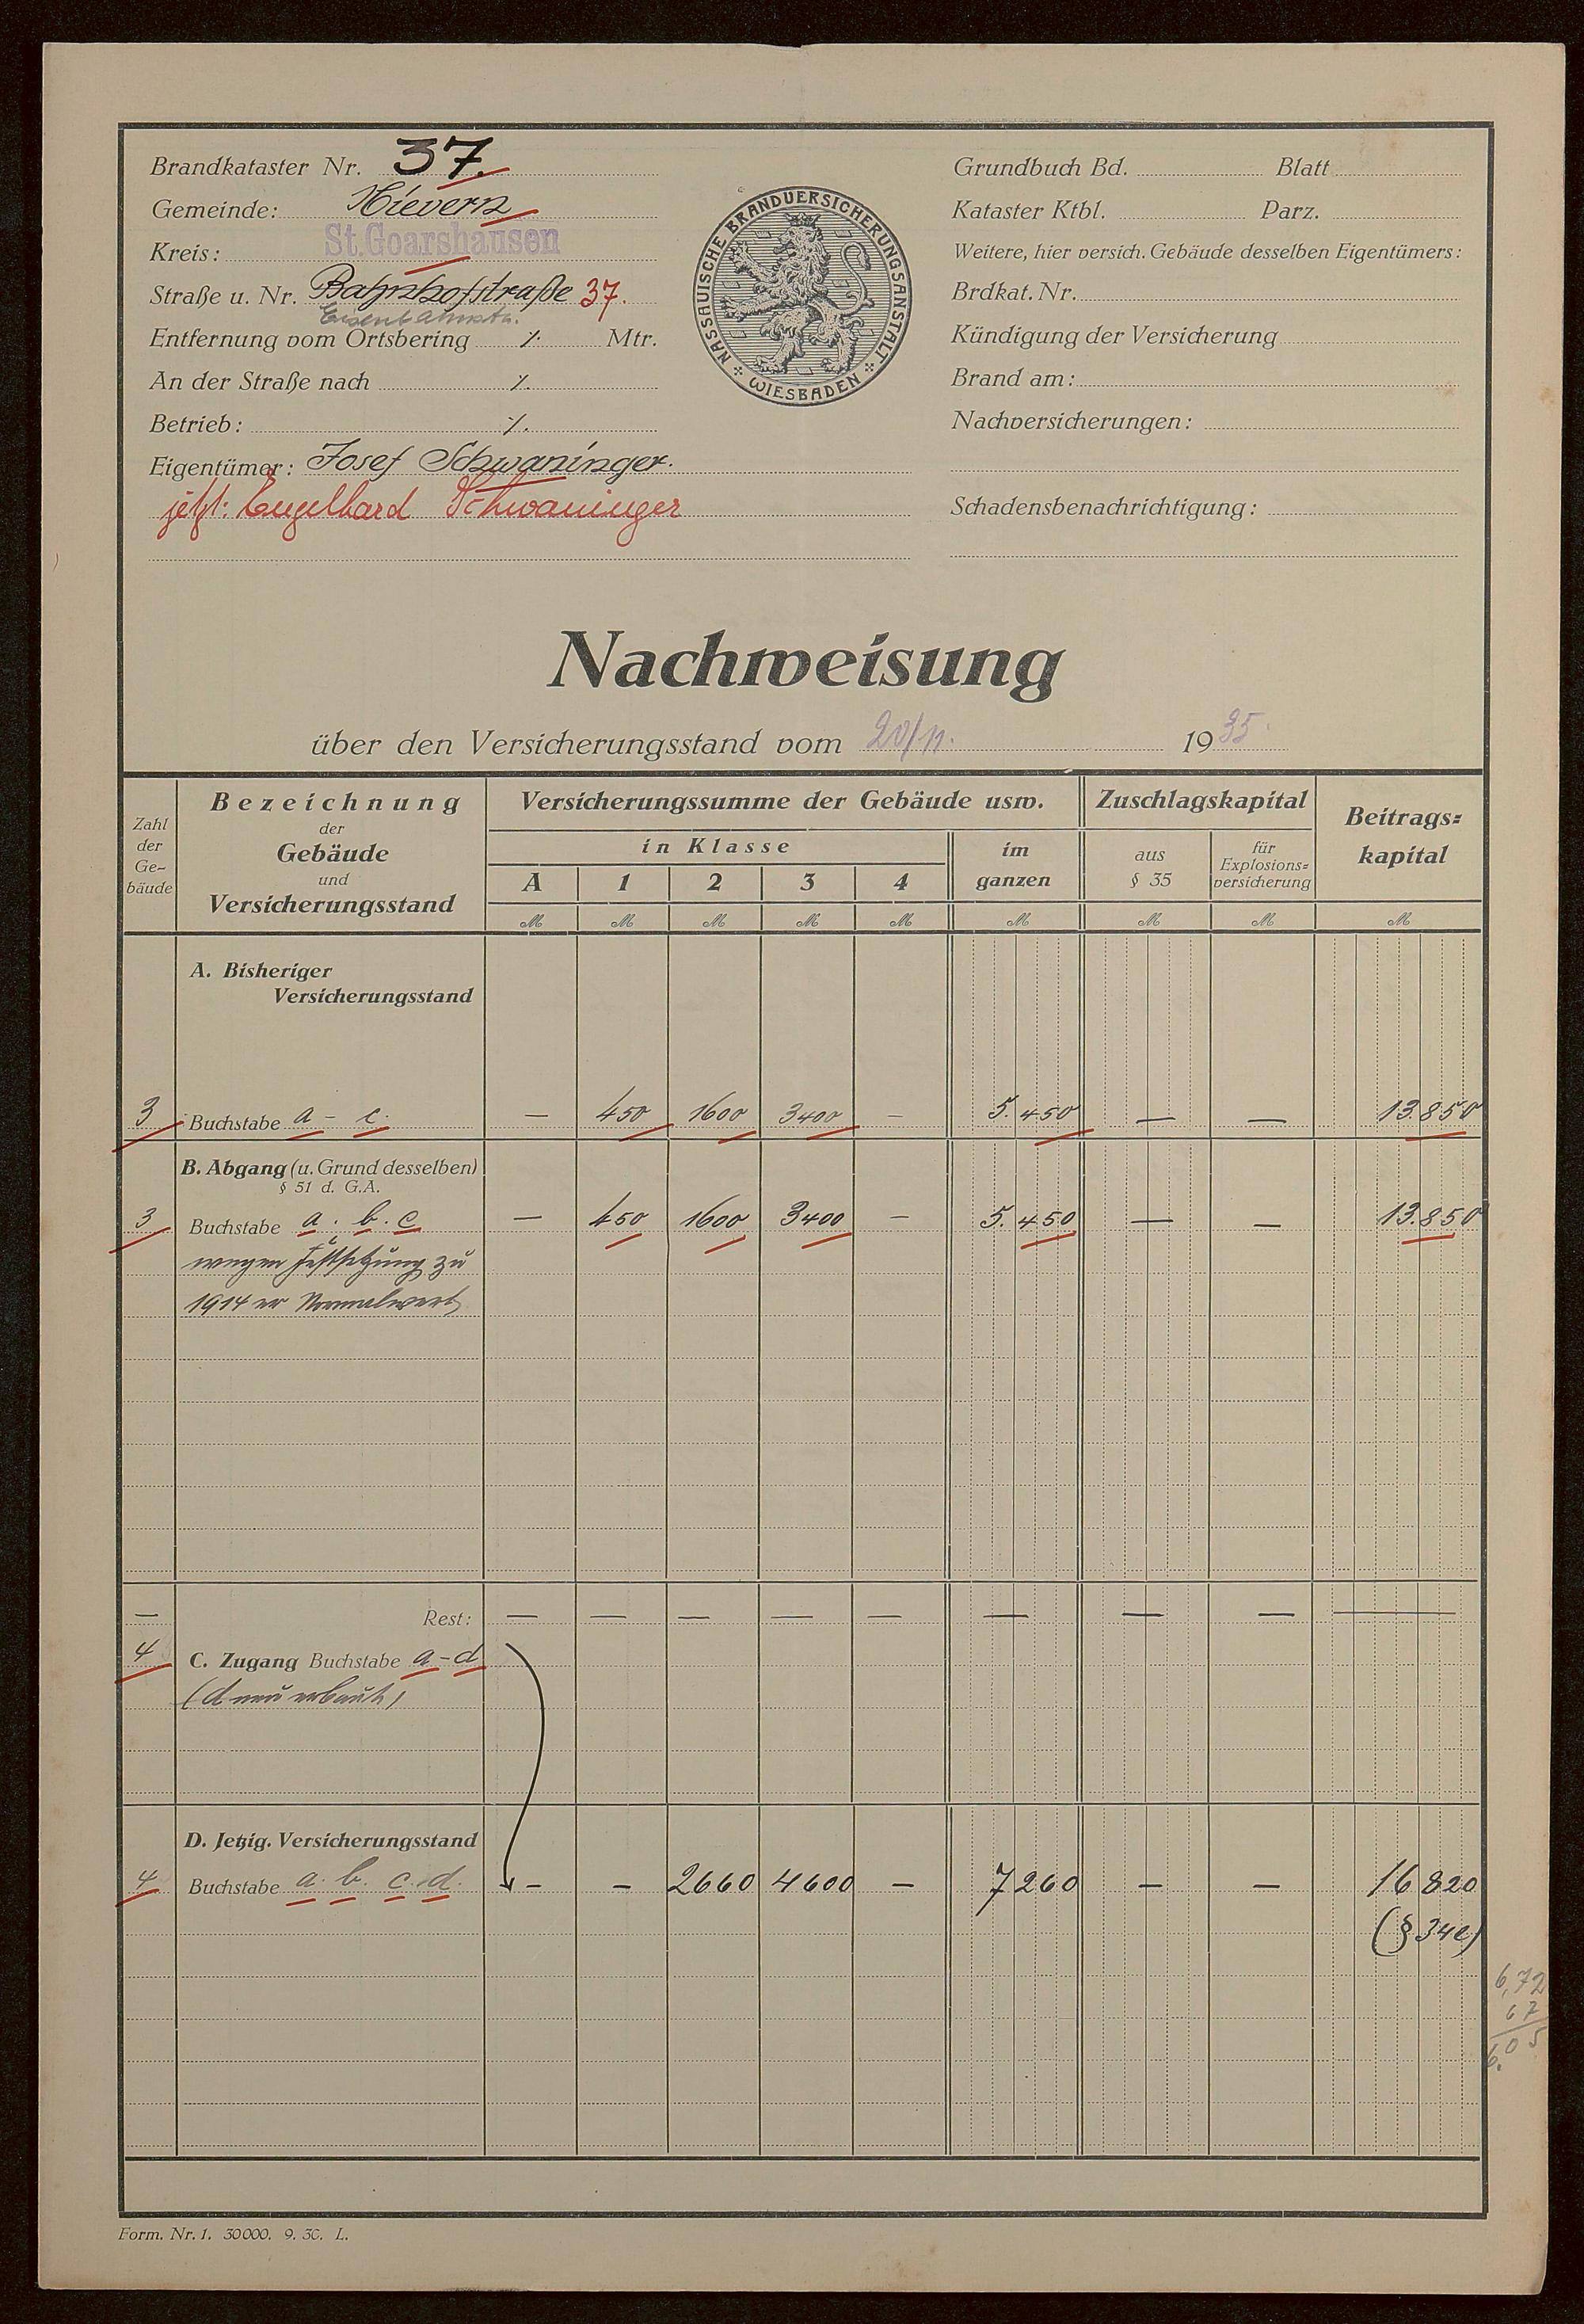 Brandkataster Nr. 37.
Gemeinde: Nievern
Kreis: St. Goarshausen
Straße u. Nr. Bahnhofstraße 37.
Eisenbahnstr.
Entfernung vom Ortsbering ⁒ Mtr.
An der Straße nach ⁒
Betrieb: ⁒
Eigentümer: Josef Schwaninger.
jetzt: Engelhard Schwaninger
NASSAUISCHE BRANDVERSICHERUNGSANSTALT
WIESBADEN
Grundbuch Bd. Blatt
Kataster Ktbl. Parz.
Weitere, hier versich. Gebäude desselben Eigentümers:
Brdkat. Nr.
Kündigung der Versicherung
Brand am:
Nachversicherungen:
Schadensbenachrichtigung:
Nachweisung
über den Versicherungsstand vom 20/11. 1935.
Zahl der Ge-bäude
Bezeichnung der Gebäude und Versicherungsstand
Versicherungssumme der Gebäude usw.
in Klasse
A 1 2 3 4
im ganzen
Zuschlagskapital
aus § 35
für Explosions-versicherung
Beitrags-kapital
M M M M M M M M M
A. Bisheriger
Versicherungsstand
3 Buchstabe a - c. — 450 1600 3400 — 5.450 — — 13.850
B. Abgang (u. Grund desselben)
§ 51 d. G.A.
3 Buchstabe a. b. c — 450 1600 3400 — 5.450 — — 13.850
wegen Festsetzung zu
1914er Normalwert
— Rest: — — — — — — — — —
4 C. Zugang Buchstabe a-d
(d neu erbaut)
D. Jetzig. Versicherungsstand
4 Buchstabe a. b. c. d. - - 2660 4600 - 7260 - - 16820
(§ 34e)
6,72
67
6.05
Form. Nr. 1. 30000. 9. 30. L.